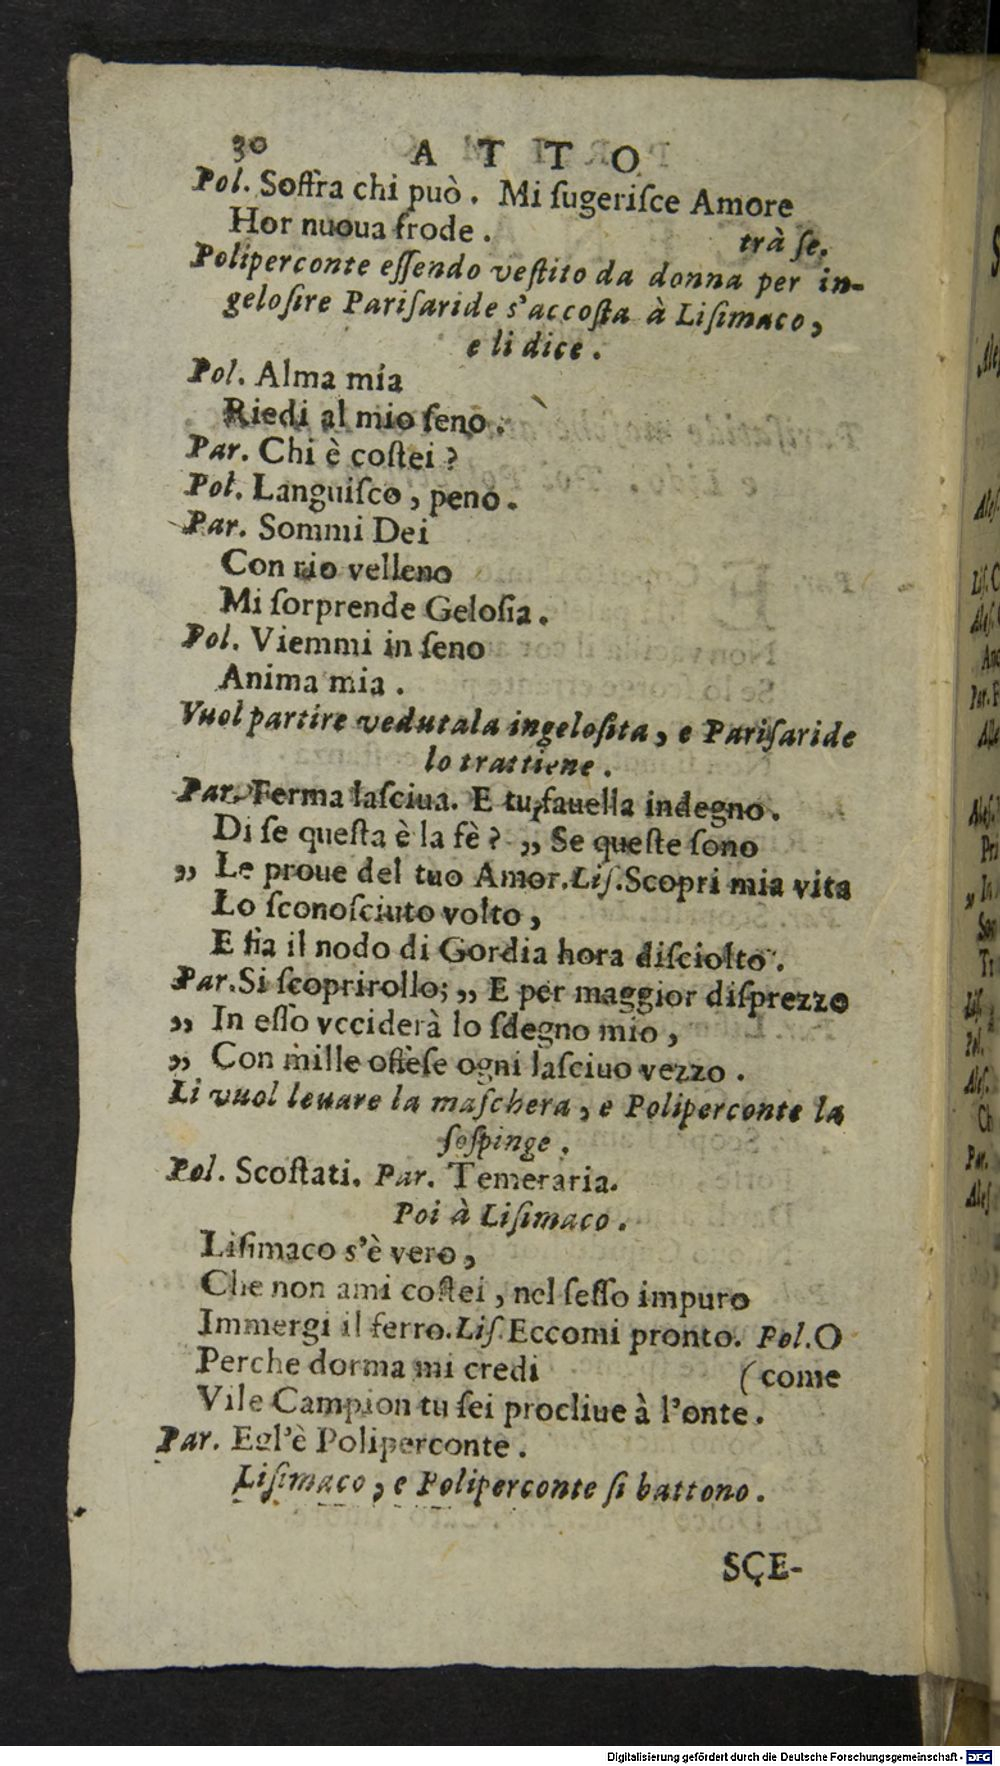 30 ATTO
Pol. Soffra chi può. Mi ſugeriſce Amore
Hor nuoua frode. trà ſe.
Poliperconte eſſendo veſtito da donna per in-
geloſire Pariſaride s'accoſta à Liſimaco,
e li dice.
Pol. Alma mía
Riedi al mio ſeno.
Par. Chi è coſtei?
Pol. Languiſco, peno.
Par. Sommi Dei
Con rio velleno
Mi ſorprende Geloſia.
Pol. Viemmi in ſeno
Anima mia.
Vuol partire vedutala ingeloſita, e Pariſaride
lo trattiene.
Par. Ferma laſciua. E tu fauella indegno.
Di ſe queſta è la fè? „ Se queſte ſono
„ Le proue del tuo Amor. Liſ. Scopri mia vita
Lo ſconoſciuto volto,
E ſia il nodo di Gordia hora diſciolto.
Par. Si ſcoprirollo; „ E per maggior diſprezzo
„ In eſſo vcciderà lo ſdegno mio,
„ Con mille offeſe ogni laſciuo vezzo.
Li vuol leuare la maſchera, e Poliperconte la
ſoſpinge.
Pol. Scoſtati. Par. Temeraria.
Poi à Liſimaco.
Liſimaco s'è vero,
Che non ami coſtei, nel ſeſſo impuro
Immergi il ferro. Liſ. Eccomi pronto. Pol. O
Perche dorma mi credi (come
Vile Campion tu ſei procliue à l'onte.
Par. Egl'è Poliperconte.
Liſimaco, e Poliperconte ſi battono.
SCE-
Digitalisierung gefördert durch die Deutsche Forschungsgemeinschaft - DFG